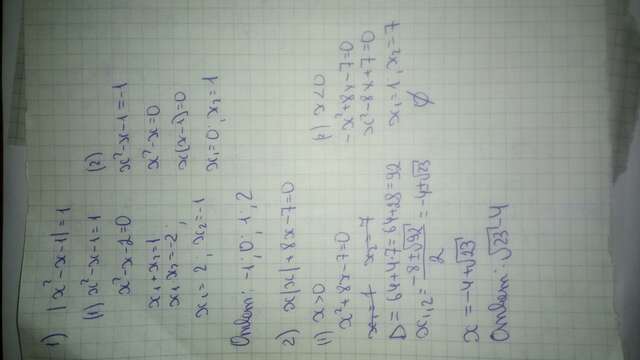 1) |x²-x-1|=1
(1) x²-x-1=1
x²-x-2=0
x₁+x₂=1
x₁x₂=-2;
x₁=2; x₂=-1
(2)
x²-x-1=-1
x²-x=0
x(x-1)=0
x₁=0; x₂=1
Ответ: -1; 0; 1; 2
2) x|x|+8x-7=0
(1) x>0
x²+8x-7=0
x₁=1 x₂=7
D=64+4·7=64+28=92
x₁,₂=(-8±√92)/2=-4±√23
x=-4+√23
(2) x<0
-x²+8x-7=0
x²-8x+7=0
x₁=1; x₂=7
∅
Ответ: √23-4